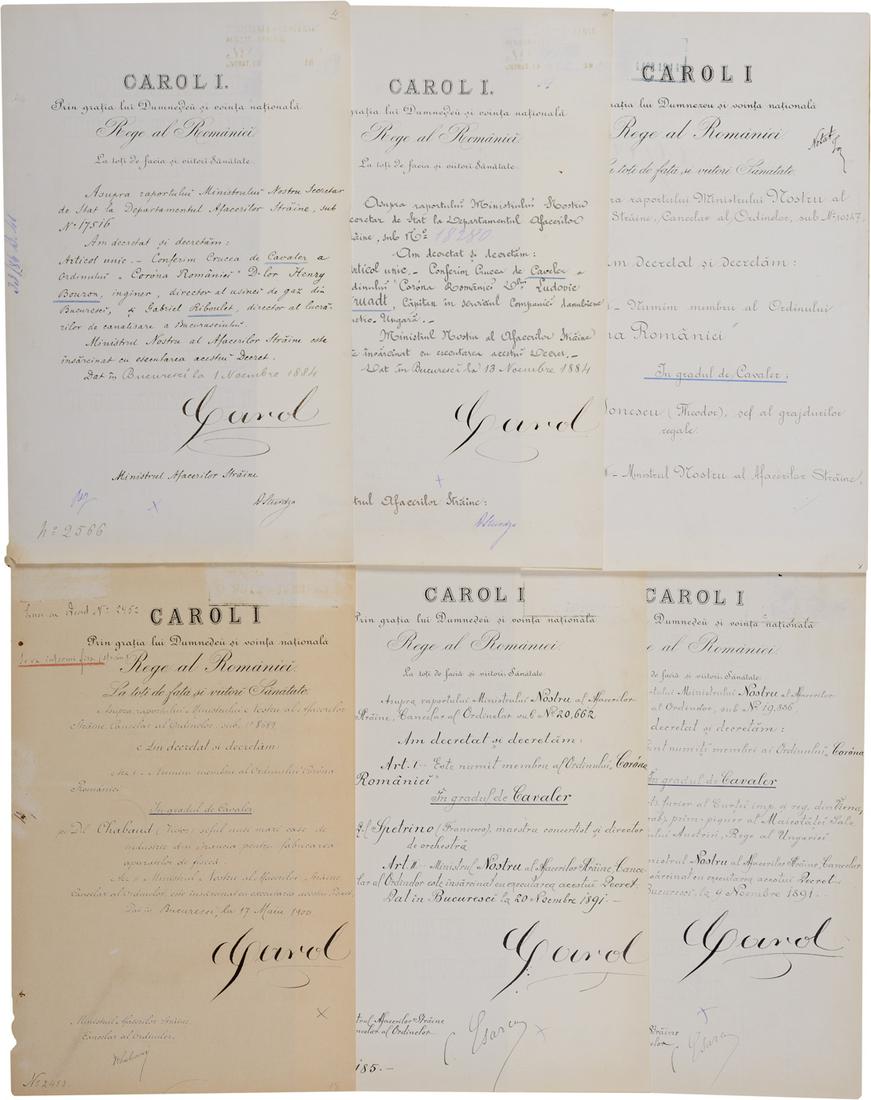 CAROL I.
Prin grația lui Dumnedeŭ și voința națională
Rege al României
La toți de facia și viitori Sănătate
Asupra raportului Ministrului Nostru Secretar
de Stat la Departamentul Afacerilor Străine, sub
Nº 17516.
Am decretat și decretăm:
Articol unic. – Conferim Crucea de Cavaler a
Ordinului „Coróna României” D-lor Henry
Bouron, inginer, director al usinei de gaz din
Bucuresci, și Gabriel Riboulet, director al lucră-
rilor de canalisare a Bucurescilui.
Ministrul Nostru al Afacerilor Străine este
însărcinat cu esecutarea acestui Decret.
Dat în Bucuresci la 1 Noembre 1884
Carol
Ministrul Afacerilor Străine
DSturdza
Nº 2566
CAROL I.
grația lui Dumnedeŭ și voința națională
Rege al României
La toți de facia și viitori Sănătate.
Asupra raportului Ministrului Nostru
ecretar de Stat la Departamentul Afacerilor
răine, sub Nº 18280
Am decretat și decretăm:
rticol unic. – Conferim Crucea de Cavaler a
rdinului „Coróna României” Ludovic
ruadt, Căpitan în serviciul Companiei danubiene
Ungară. –
Ministrul Nostru al Afacerilor Străine
e însărcinat cu esecutarea acestui Decret. –
Dat în Bucuresci la 13 Noembre 1884
Carol
trul Afacerilor Străine:
DSturdza
CAROL I
ația lui Dumnezeu și voința națională
Rege al României
La toți de fața și viitori Sănătate
ra raportului Ministrului Nostru al
Străine, Cancelar al Ordinelor, sub
m Decretat și Decretăm:
– Numim membru al Ordinului
na României”
In gradul de Cavaler:
Jonescu (Theodor), șef al grajdurilor
regale.
– Ministrul Nostru al Afacerilor Străine,
Nº 2452
CAROL I
Prin grația lui Dumnedeŭ și voința națională
Rege al României.
La toți de fața și viitori Sănătate.
Asupra raportului Ministrului Nostru al Afacerilor
Străine, Cancelar al Ordinelor, sub Nº 8689
Am decretat și decretăm:
Art. I – Numim membru al Ordinului Coróna
României
In gradul de Cavaler
pe Dl Chabaud șeful unei mari case de
industrie din Francia pentru fabricarea
aparatelor de fisică.
Art. II Ministrul Nostru al Afacerilor Străine,
Cancelar al Ordinelor, este însărcinat cu executarea acestui Decret.
Dat în Bucuresci, la 17 Maiu 1900
Carol
Ministrul Afacerilor Străine
Cancelar al Ordinelor,
CAROL I
Prin grația lui Dumnedeŭ și voința națională
Rege al României.
La toți de facia și viitorii Sănătate.
Asupra raportului Ministrului Nostru al Afacerilor
Străine, Cancelar al Ordinelor sub Nº 20,662
Am decretat și decretăm:
Art. I – Este numit membru al Ordinului „Coróna
României”
In gradul de Cavaler
Spetrino (Francesco), maestru concertist și director
de orchestră
Art. II – Ministrul Nostru al Afacerilor Străine, Cance-
lar al Ordinelor este însărcinat cu executarea acestui Decret.
Dat în Bucuresci la 20 Noembre 1891. –
Carol
trul Afacerilor Străine
ncelar al Ordinelor
Esarcu
185. –
CAROL I
Dumnedeŭ și voința națională
ge al României.
de facia și viitorii Sănătate.
rtului Ministrului Nostru al Afacerilor
al Ordinelor, sub Nº 19,856
decretat și decretăm:
unt numiți membri ai Ordinului „Coróna
In gradul de Cavaler
furier al Curței imp. și reg. din Viena,
prim-piqueur al Maiestăței Sale
ului Austriei, Rege al Ungariei
nistrul Nostru al Afacerilor Străine, Cancelar
sărcinat cu executarea acestui Decret. –
Bucuresci, la 9 Noembre 1891. –
Carol
Străine
elor,
Esarcu